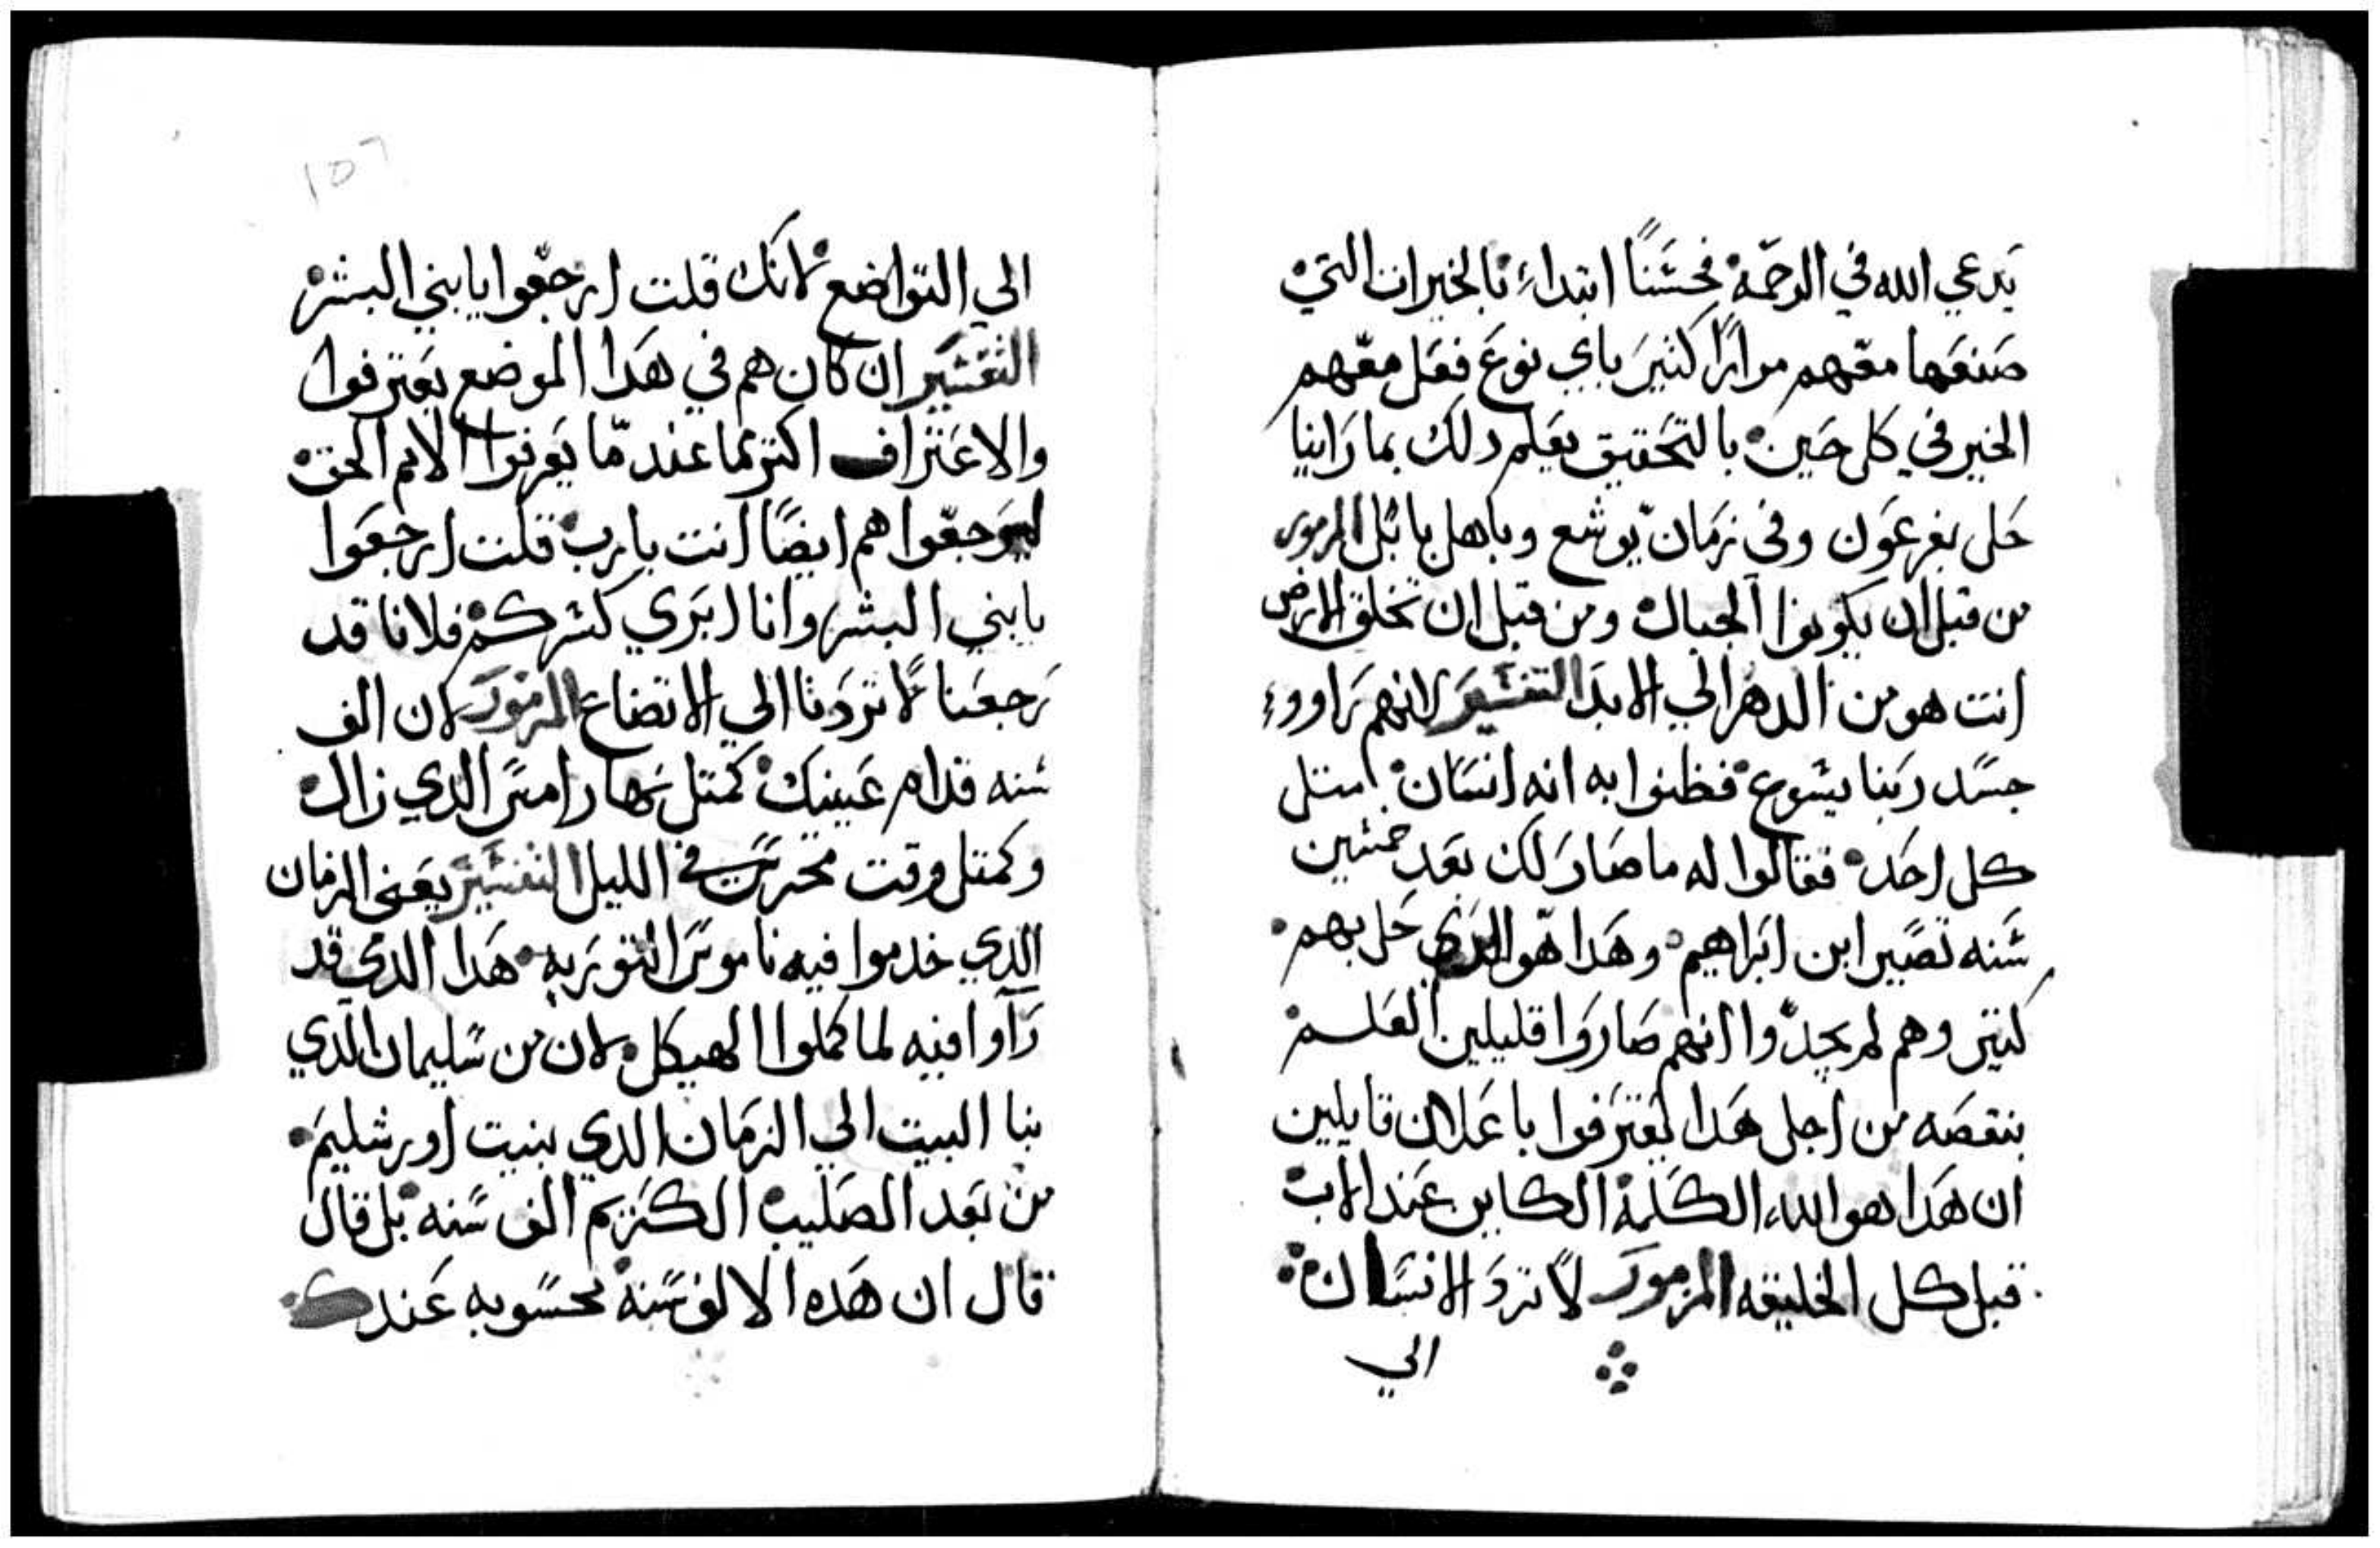 يدعي الله في الرحمة فحسنًا ابتداء بالخيرات التي
صنعها معهم مرارًا كثير باي نوع فعل معهم
الخير في كل حين بالتحقيق يعلم دلك بما راينا
حل بفرعون وفي زمان يوشع وباهل بابل المزمور
من قبل ان يكونوا الجبال ومن قبل ان تخلق الارض
انت هو من الدهر الي الابد التفسير لانهم راووء
جسد ربنا يسوع فظنوا به انه انسان متل
كل احد فقالوا له ما صار لك بعد خمسين
سنه تصير ابن ابراهيم وهدا هو الدي حل بهم
كتير وهم لم يجدوا انهم صاروا قليلين العلم
بنقصه من اجل هدا يعترفوا باعلان قايلين
ان هدا هو الله الكلمة الكاين عند الاب
قبل كل الخليقه المزمور لا ترد الانسان
الي
١٥٦
الي التواضع لانك قلت ارجعوا يا بني البشر
التفسير ان كان هم في هدا الموضع يعترفوا
والاعتراف اكتر مما عند ما يعرفوا الامم الحق
ليرجعوا هم ايضًا انت يارب قلت ارجعوا
يا بني البشر وانا ابري كسركم فلانا قد
رجعنا لا تردنا الي الاتضاع المزمور لان الف
سنه قدام عينيك كمتل نهار امس الدي زال
وكمتل وقت محرس في الليل التفسير يعني الزمان
الدي خدموا فيه ناموس التوريه هدا الدي قد
رآوا فيه لما كملوا الهيكل لان من سليمان الدي
بنا البيت الي الزمان الدي بنيت اورشليم
من بعد الصليب الكريم الف سنه بل قال
قال ان هده الالف سنة محسوبه عندك